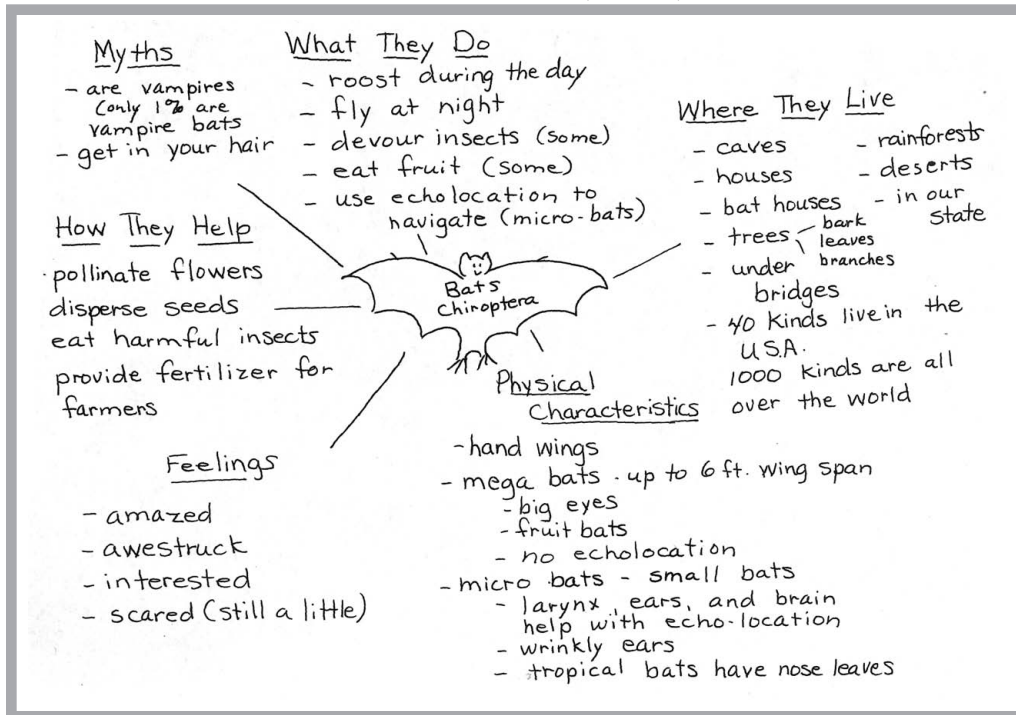 Myths
- are vampires
(only 1% are
vampire bats
- get in your hair
What They Do
- roost during the day
- fly at night
- devour insects (some)
- eat fruit (some)
- use echolocation to
navigate (micro-bats)
Where They Live
- caves
- houses
- bat houses
- trees - bark
leaves
branches
- under
bridges
- 40 kinds live in the
U.S.A.
1000 kinds are all
over the world
- rainforests
- deserts
- in our
state
How They Help
· pollinate flowers
disperse seeds
eat harmful insects
provide fertilizer for
farmers
Bats
Chiroptera
Feelings
- amazed
- awestruck
- interested
- scared (still a little)
Physical
Characteristics
- hand wings
- mega bats · up to 6 ft. wing span
- big eyes
- fruit bats
- no echolocation
- micro bats - small bats
- larynx, ears, and brain
help with echo-location
- wrinkly ears
- tropical bats have nose leaves